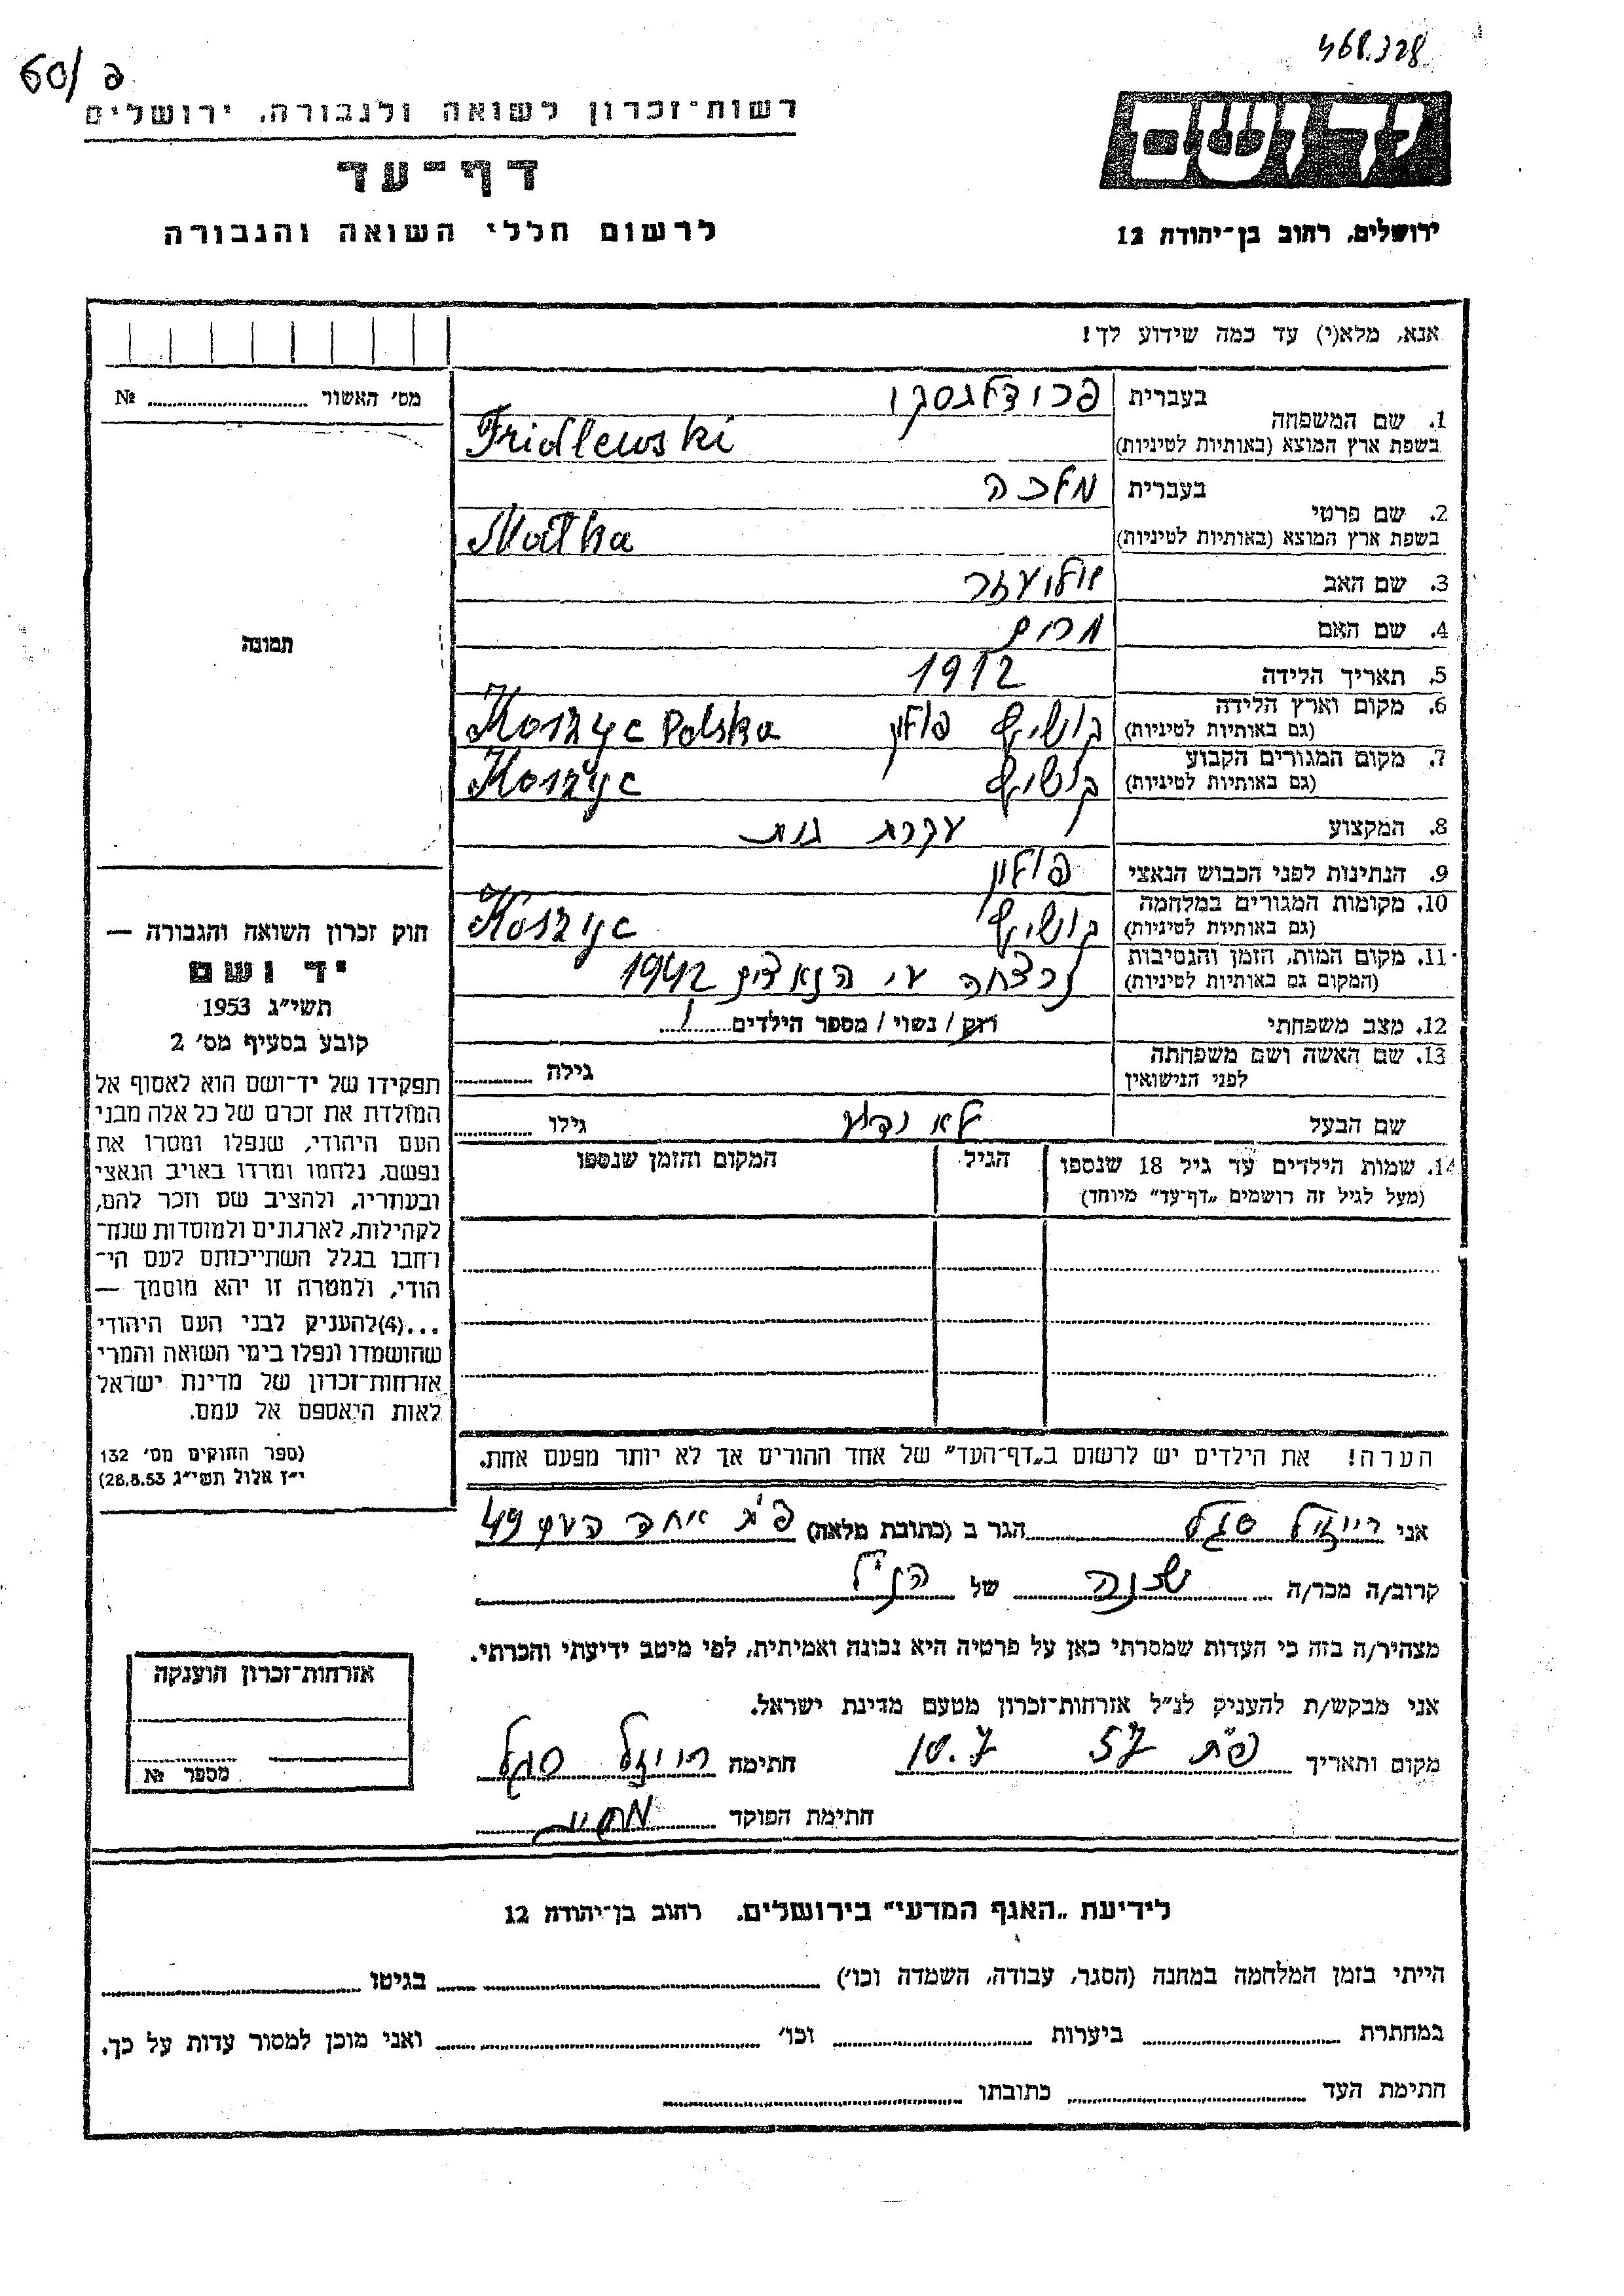 468.328
60/פ
רשות-זכרון לשואה ולגבורה, ירושלים
דף-עד
לרשום חללי השואה והגבורה
יד ושם
ירושלים, רחוב בן-יהודה 12
אנא, מלא(י) עד כמה שידוע לך!
מס' האשור № 
1. שם המשפחה
בעברית
בשפת ארץ המוצא (באותיות לטיניות) Fridlewski
2. שם פרטי
בעברית מלכה
בשפת ארץ המוצא (באותיות לטיניות) Malka
3. שם האב אליעזר
4. שם האם מרים
5. תאריך הלידה 1912
6. מקום וארץ הלידה
(גם באותיות לטיניות) קושיץ פולין Koszyc Polska
7. מקום המגורים הקבוע
(גם באותיות לטיניות) קושיץ Koszyc
8. המקצוע עקרת בית
9. הנתינות לפני הכבוש הנאצי פולין
10. מקומות המגורים במלחמה
(גם באותיות לטיניות) קושיץ Koszyc
11. מקום המות, הזמן והנסיבות
(המקום גם באותיות לטיניות) נרצחה ע"י הנאצים 1942
12. מצב משפחתי רוק / נשוי / מספר הילדים 1
13. שם האשה ושם משפחתה
לפני הנישואין גילה
שם הבעל לא ידוע גילו
14. שמות הילדים עד גיל 18 שנספו הגיל המקום והזמן שנספו
(מעל לגיל זה רושמים "דף-עד" מיוחד)
הערה! את הילדים יש לרשום ב"דף-העד" של אחד ההורים אך לא יותר מפעם אחת.
תמונה
חוק זכרון השואה והגבורה —
יד ושם
תשי"ג 1953
קובע בסעיף מס' 2
תפקידו של יד-ושם הוא לאסוף אל
המולדת את זכרם של כל אלה מבני
העם היהודי, שנפלו ומסרו את
נפשם, נלחמו ומרדו באויב הנאצי
ובעוזריו, ולהציב שם וזכר להם,
לקהילות, לארגונים ולמוסדות שנח-
רבו בגלל השתייכותם לעם הי-
הודי, ולמטרה זו יהא מוסמך —
...(4)להעניק לבני העם היהודי
שהושמדו ונפלו בימי השואה והמרי
אזרחות-זכרון של מדינת ישראל
לאות היאספם אל עמם.
(ספר החוקים מס' 132
י"ז אלול תשי"ג 28.8.53)
אני רייזל סגל הגר ב (כתובת מלאה) פ"ת אחד העם 49
קרוב/ה מכר/ה שכנה של הנ"ל
מצהיר/ה בזה כי העדות שמסרתי כאן על פרטיה היא נכונה ואמיתית, לפי מיטב ידיעתי והכרתי.
אני מבקש/ת להעניק לנ"ל אזרחות-זכרון מטעם מדינת ישראל.
מקום ותאריך פ"ת 57 10.7 חתימה רייזל סגל
חתימת הפוקד
אזרחות-זכרון הוענקה
מספר №
לידיעת "האגף המדעי" בירושלים. רחוב בן-יהודה 12
הייתי בזמן המלחמה במחנה (הסגר, עבודה, השמדה וכו') בגיטו
במחתרת ביערות וכו' ואני מוכן למסור עדות על כך.
חתימת העד כתובתו